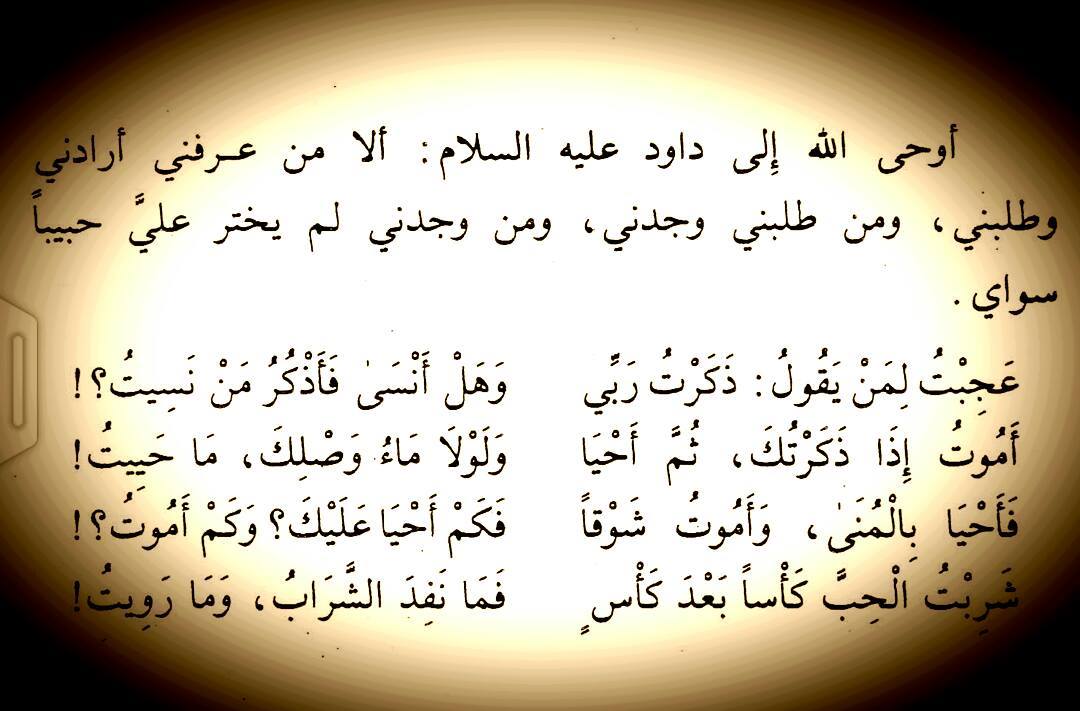 أوحى الله إلى داود عليه السلام: ألا من عـرفني أرادني
وطلبني، ومن طلبني وجدني، ومن وجدني لم يختر عليَّ حبيباً
سواي.
عَجِبْتُ لِمَنْ يَقُولُ: ذَكَرْتُ رَبِّي وَهَلْ أَنْسَىٰ فَأَذْكُرُ مَنْ نَسِيتُ؟!
أَمُوتُ إِذَا ذَكَرْتُكَ، ثُمَّ أَحْيَا وَلَوْلَا مَاءُ وَصْلِكَ، مَا حَيِيتُ!
فَأَحْيَا بِالْمُنَىٰ، وَأَمُوتُ شَوْقاً فَكَمْ أَحْيَا عَلَيْكَ؟ وَكَمْ أَمُوتُ؟!
شَرِبْتُ الْحِبَّ كَأْساً بَعْدَ كَأْسٍ فَمَا نَفِدَ الشَّرَابُ، وَمَا رَوِيتُ!